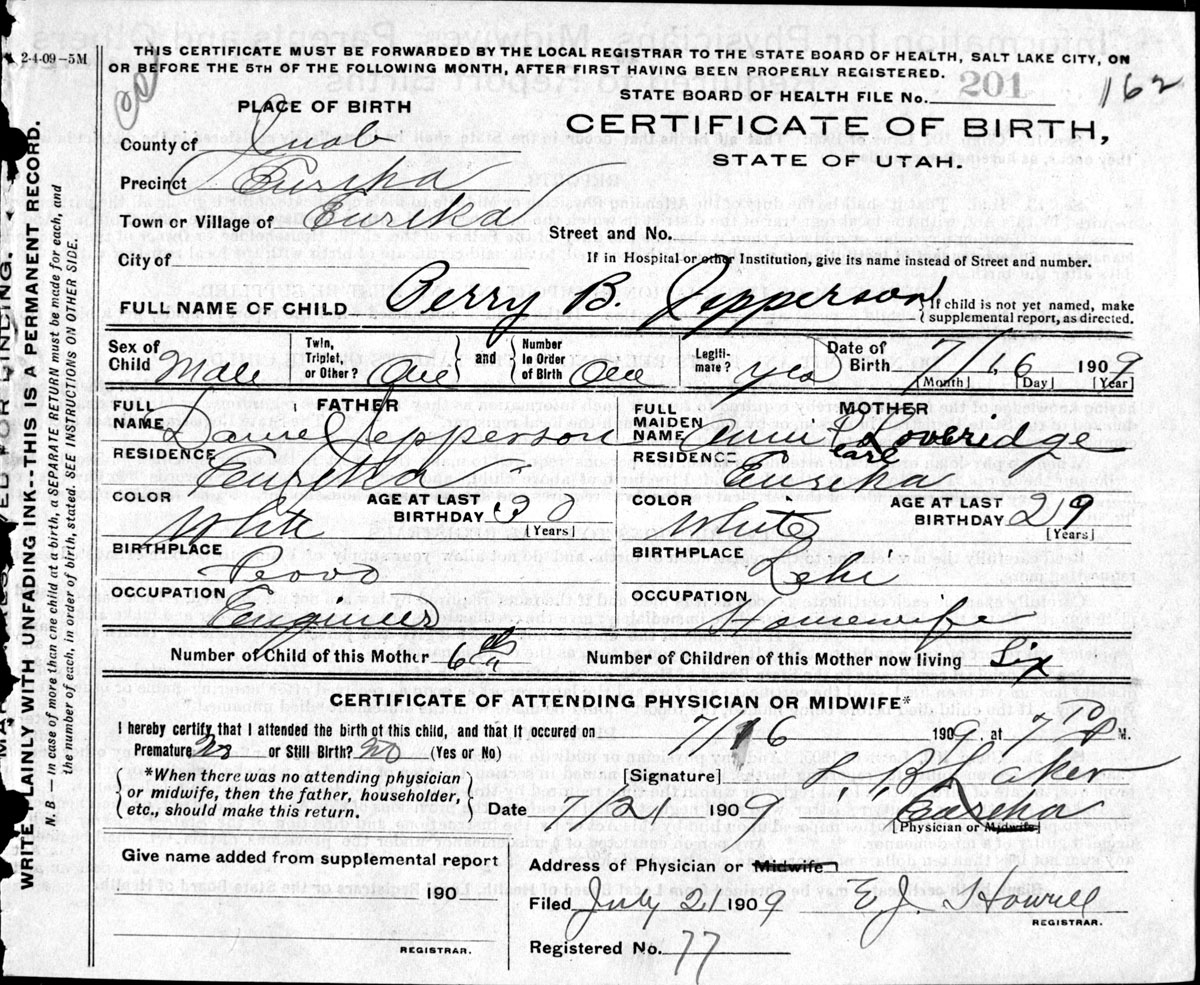 2-4-09-5M
THIS CERTIFICATE MUST BE FORWARDED BY THE LOCAL REGISTRAR TO THE STATE BOARD OF HEALTH, SALT LAKE CITY, ON
OR BEFORE THE 5TH OF THE FOLLOWING MONTH, AFTER FIRST HAVING BEEN PROPERLY REGISTERED.
STATE BOARD OF HEALTH FILE No. 201 162
PLACE OF BIRTH
CERTIFICATE OF BIRTH,
STATE OF UTAH.
County of Juab
Precinct Eureka
Town or Village of Eureka
Street and No.
City of
If in Hospital or other Institution, give its name instead of Street and number.
FULL NAME OF CHILD Perry B. Jepperson
{If child is not yet named, make
supplemental report, as directed.
Sex of Child Male
Twin, Triplet, or Other? One
and
Number in Order of Birth One
Legitimate? yes
Date of Birth 7/16 1909
[Month] [Day] [Year]
FATHER
FULL NAME Daniel Jepperson
RESIDENCE
Eureka
COLOR White
AGE AT LAST BIRTHDAY 30
[Years]
BIRTHPLACE
Provo
OCCUPATION Engineer
MOTHER
FULL MAIDEN NAME Loveridge
RESIDENCE
Eureka
COLOR White
AGE AT LAST BIRTHDAY 29
[Years]
BIRTHPLACE
Lehi
OCCUPATION
Housewife
Number of Child of this Mother 6th
Number of Children of this Mother now living Six
CERTIFICATE OF ATTENDING PHYSICIAN OR MIDWIFE*
I hereby certify that I attended the birth of this child, and that it occured on 7/16 1909, at 7 P M.
Premature no or Still Birth? no (Yes or No)
{*When there was no attending physician
or midwife, then the father, householder,
etc., should make this return.}
[Signature] Laker
Date 7/21 1909 Eureka
[Physician or Midwife]
Give name added from supplemental report
190
REGISTRAR.
Address of Physician or Midwife
Filed July 21 1909 E J Howell
REGISTRAR.
Registered No. 77
WRITE PLAINLY WITH UNFADING INK--THIS IS A PERMANENT RECORD.
N. B.—In case of more than one child at a birth, a SEPARATE RETURN must be made for each, and
the number of each, in order of birth, stated. SEE INSTRUCTIONS ON OTHER SIDE.